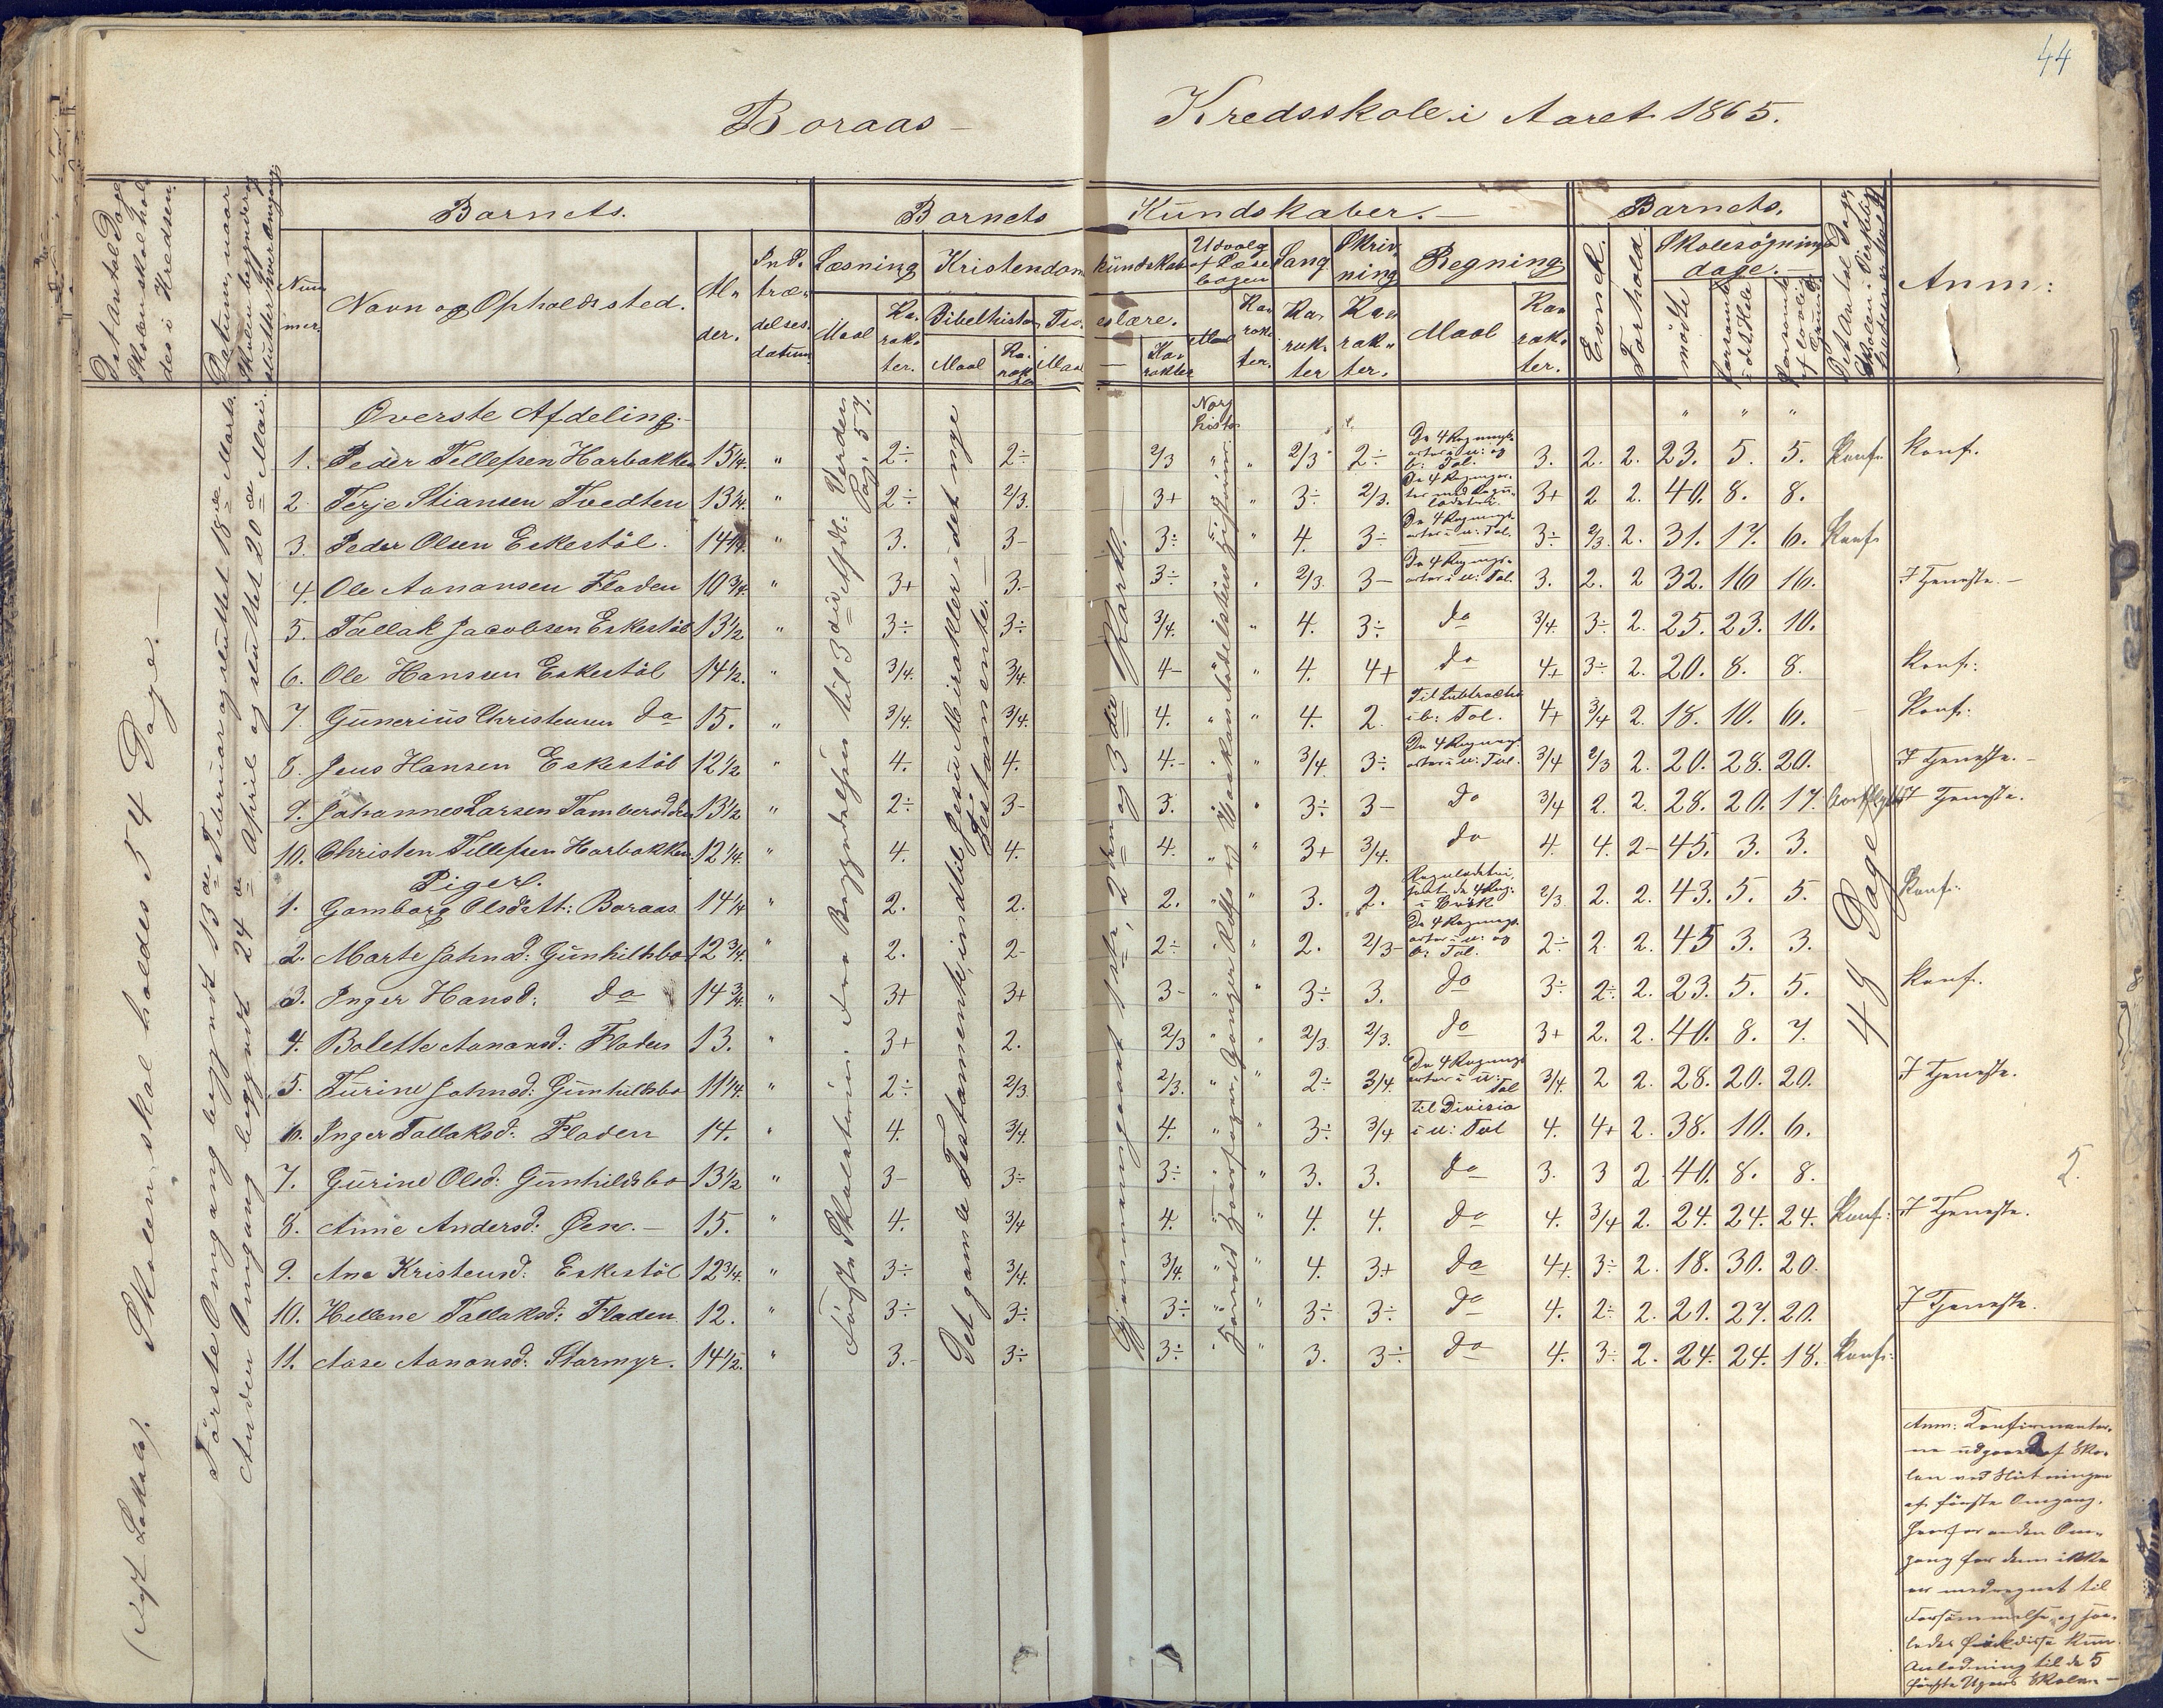 44
Boraas — Kredsskole i Aaret 1865.
Det Antal Dage Skolen skal holdes i Kredsen.
Datum, naar Skolen begynder og slutter hver Omgang
Barnets. Barnets Kundskaber. — Barnets.
Nummer. Navn og Opholdssted. Alder. Indtrædelses datum.
Læsning Kristendomskundskab Udvalg af Læsebogen Sang Skrivning Regning
Maal Karakter. Bibelhistorie Maal Karakter Troeslære. Maal Karakter
Maal Karakter. Karakter Karakter. Maal Karakter.
Evnek. Forhold. Skolesøgningsdage. — mødte forsømte i det Hele forsømte af lovlig Grund
Det Antal Dage Skolen i Virkeligheden er holdt
Anm:
(Nyt Lokale). Skolen skal holdes 54 Dage. —
Første Omgang begyndt 13de Februar og sluttet 18de Marts.
Anden Omgang begyndt 24de April og sluttet 20de Mai.
Det gamle Testamente, indtil Jesu Mirakler i det nye Testamente. —
Gjennemgaaet 1ste, 2den og 3die Parti. —
48 Dage
Øverste Afdeling. — Norg histo
1. Peder Tellefsen Harbakken 15¼. " 2÷ 2÷ 2/3 " " 2/3 2÷ De 4 Regningsarter i u: og b: Tal. 3. 2. 2. 23. 5. 5. Konf. Konf.
2. Terje Stiansen Tvedten 13¼. " 2÷ 2/3. 3+ " 3÷ 2/3. 3+ 2 2. 40. 8. 8.
3. Peder Olsen Eskestøl. 14¼. " 3. 3- 3÷ " 4. 3÷ De 4 Regningsarter i u: Tal. 3÷ 2/3. 2. 31. 17. 6. Konf.
4. Ole Aanansen Fladen 10¾. " 3+ 3.- 3÷ " 2/3. 3- De 4 Regningsarter i u: Tal. 3. 2. 2 32. 16 16. I Tjeneste. —
5. Tallak Jacobsen Eskestøl 13½ " 3÷ 3÷ 3/4. " 4. 3÷ do 3/4. 3÷ 2. 25. 23. 10.
6. Ole Hansen Eskestøl 14½. " 3/4. 3/4. 4- " 4. 4+ do 4+ 3÷ 2. 20. 8. 8. Konf:
7. Gunerius Christensen do 15. " 3/4. 3/4. 4. " " 4. 2. Til Subtraction i b: Tal. 4+ 3/4 2. 18. 10. 6. Konf:
8. Jens Hansen Eskestøl 12½ " 4. 4. 4.- " " 3/4 3÷ De 4 Regningsarter i u: Tal. 3/4 2/3 2. 20. 28. 20. I Tjeneste. —
9. Johannes Larsen 13½ " 2÷ 3- 3. " 3÷ 3- do 3/4 2. 2. 28. 20. 17. I Tjeneste.
10. Christen Tellefsen Harbakken 12¼. " 4. 4. 4. " " 3+ 3/4. do 4. 4. 2- 45. 3. 3.
Piger.
1. Gomborg Olsdatt: Boraas 14¼ " 2. 2. 2. " " 3. 2. 2/3 2. 2. 43. 5. 5. Konf:
2. Marte Johnsd: Gunhildsbo 12¾. " 2. 2- 2÷ 2. 2/3- De 4 Regningsarter i u: og b: Tal. 2÷ 2. 2. 45 3. 3.
3. Inger Hansd: do 14¾. " 3+ 3+ 3- " " 3÷ 3. do 3÷ 2÷ 2. 23. 5. 5. Konf.
4. Bolette Aanansd: Fladen 13. " 3+ 2. 2/3 " " 2/3 2/3. do 3+ 2. 2. 40. 8. 7.
5. Turine Johnsd: Gunhildsbo 11¼. " 2÷ 2/3 2/3. " " 2÷ 3/4. De 4 Regningsarter i u: Tal 3/4. 2 2. 28. 20. 20. I Tjeneste.
6. Inger Tallaksd: Fladen 14. " 4. 3/4. 4. " " 3÷ 3/4 til Division i u: Tal 4. 4+ 2. 38. 10. 6.
7. Gurine Olsd: Gunhildsbo 13½ " 3- 3÷ 3÷ " " 3. 3. do 3. 3 2 40. 8. 8.
8. Anne Andersd: Øen. — 15. " 4. 3/4 4. " " 4. 4. do 4. 3/4 2. 24. 24. 24. Konf: I Tjeneste.
9. Ane Kristensd: Eskestøl 12¾. " 3÷ 3/4. 3/4. " " 4. 3+ do 4+. 3÷ 2. 18. 30. 20.
10. Hellene Tallaksd: Fladen 12. " 3÷ 3÷ 3÷ " " 3÷ 3÷ do 4. 2÷ 2. 21. 27. 20. I Tjeneste.
11. Aase Aanonsd: Starmyr. 14½. " 3.- 3÷ 3÷ " " 3. 3÷ do 4. 3÷ 2. 24. 24. 18. Konf:
Anm: Konfirmanter-
ne udgaaed af Sko-
len ved Slutningen
af første Omgang,
hvorfor anden Om-
gang for dem ikke
er medregnet til
Forsømmelse, og saa-
ledes fik disse kun
Anledning til de 5
første Ugers Skole. —